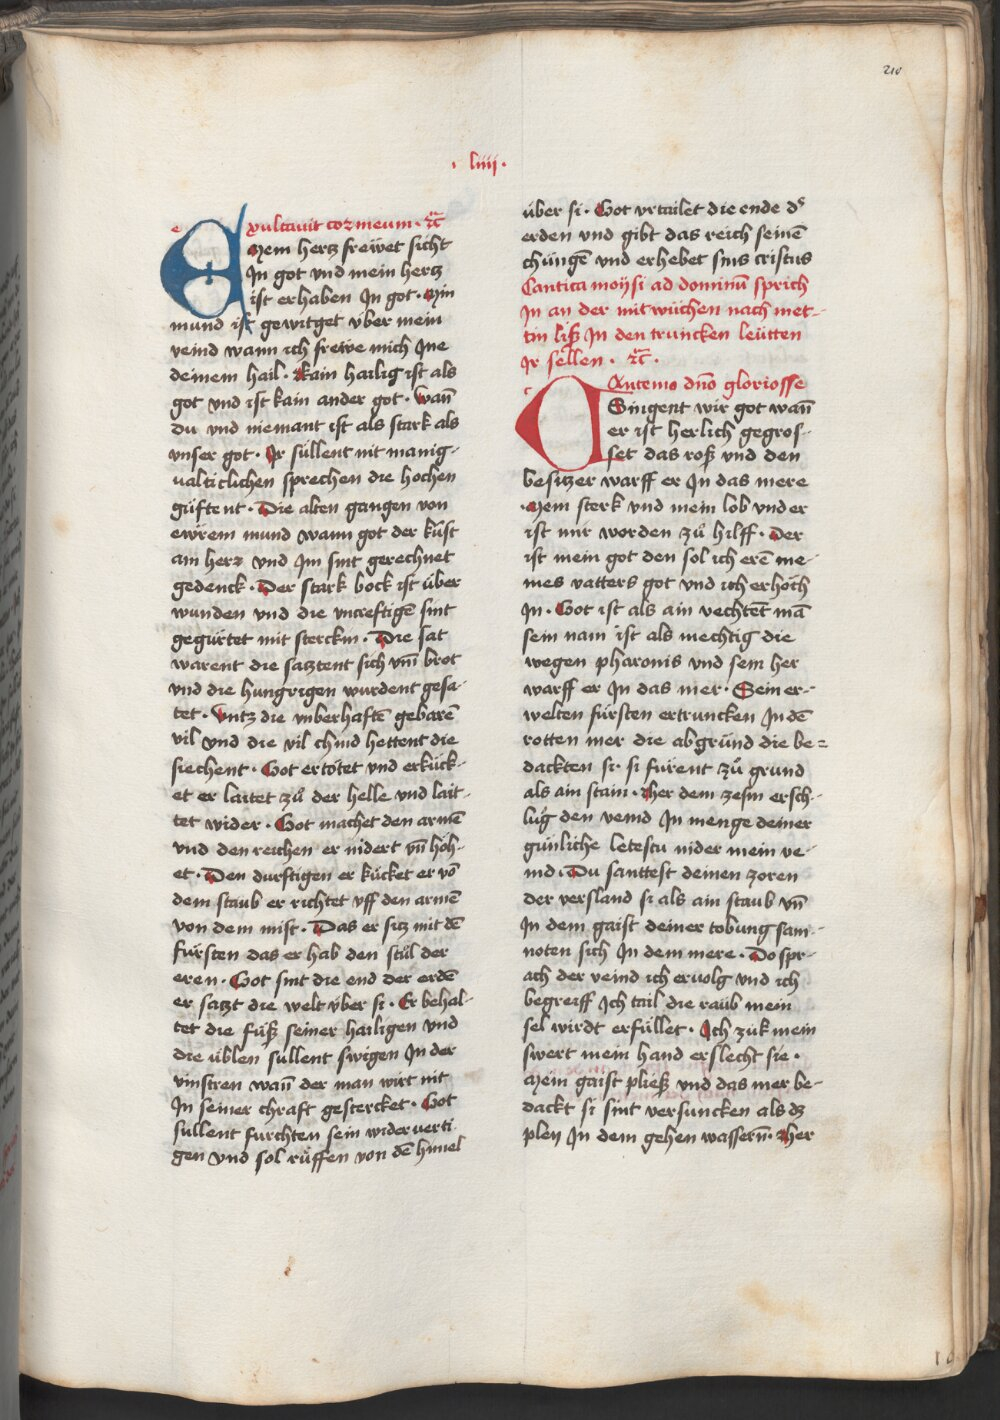 210
· liiij ·
Exultauit cor meum · etc̃
Mein hertz frewet sicht
In got vnd mein hertz
ist erhaben In got · Min
mund ist gewitget v̈ber mein
veind wann ich frewe mich Jne
deinem hail · Kain hailig ist als
got vnd ist kain ander got · wañ
du vnd niemant ist als stark als
vnser got · Ir süllent nit manig-
ualticlichen sprechen die hochen
güftent · Die alten gangen von
ewrem mund wann got der kũst
ain herz vnd Im sint gerechnet
gedenck · Der stark bock ist über
wunden vnd die vncreftigẽ sint
gegürtet mit sterckin · Die sat
warent die saztent sich vm̃ brot
vnd die hungrigen wurdent gesa-
tet · Vntz die vnberhaftẽ gebarẽ
vil vnd die vil chind hettent die
siechent · Got ertötet vnd erkück-
et er laitet zů der helle vnd lait-
tet wider · Got machet den armẽ
vnd den reichen er nidert vñ höh-
et · Den durftigen er kücket er võ
dem staub er richtet vff den armẽ
von dem mist · Das er sitz mit dẽ
fürsten das er hab den stůl der
eren · Got sint die end der erdẽ
er sazt die welt v̈ber si · Er behal-
tet die füß seiner hailigen vnd
die üblen sullent swigen In der
vinstren wañ der man wirt nit
In seiner chraft gestercket · Got
sullent furchten sein widerverti-
gen vnd sol rüffen von dẽ himel
über si · Got vrtailet die ende ds
erden vnd gibt das reich seinẽ
chüngẽ vnd erhebet sins cristus
Cantica moÿsi ad dominũ sprich
In an der mitwüchen nach met-
tin liß In den truncken leütten
Ir sellen · etc̃ ·
Cantemo dño gloriosse
Singent wir got wañ
er ist herlich gegros-
set das roß vnd den
besitzer warff er In das mere
· Mein sterk vnd mein lob vnd er
ist mir worden zů hilff · Der
ist mein got den sol ich erẽ me-
mes vatters got vnd ich erhöch
In · Got ist als ain vechtẽt mã
sein nam ist als mechtig die
wegen pharonis vnd sein her
warff er In das mer · Sein er-
welten fürsten ertruncken In dẽ
rotten mer die abgründ die be=
dackten si · si fürent zů grund
als ain stain · Her dem zesm ersch-
lůg den veind In menge deiner
günliche letestu nider mein ve-
ind · Du santtest deinen zoren
der versland si als ain staub vñ
In dem gaist deiner tobung sam-
noten sich In dem mere · Do spr-
ach der veind ich ervolg vnd ich
begreiff Ich tail die raüb mein
sel wirdt erfüllet · Ich zuk mein
swert mein hand erslecht sie ·
Mein gaist pließ vnd das mer be-
dackt si sint versuncken als dz
pley In dem gehen wassern̄ · Her